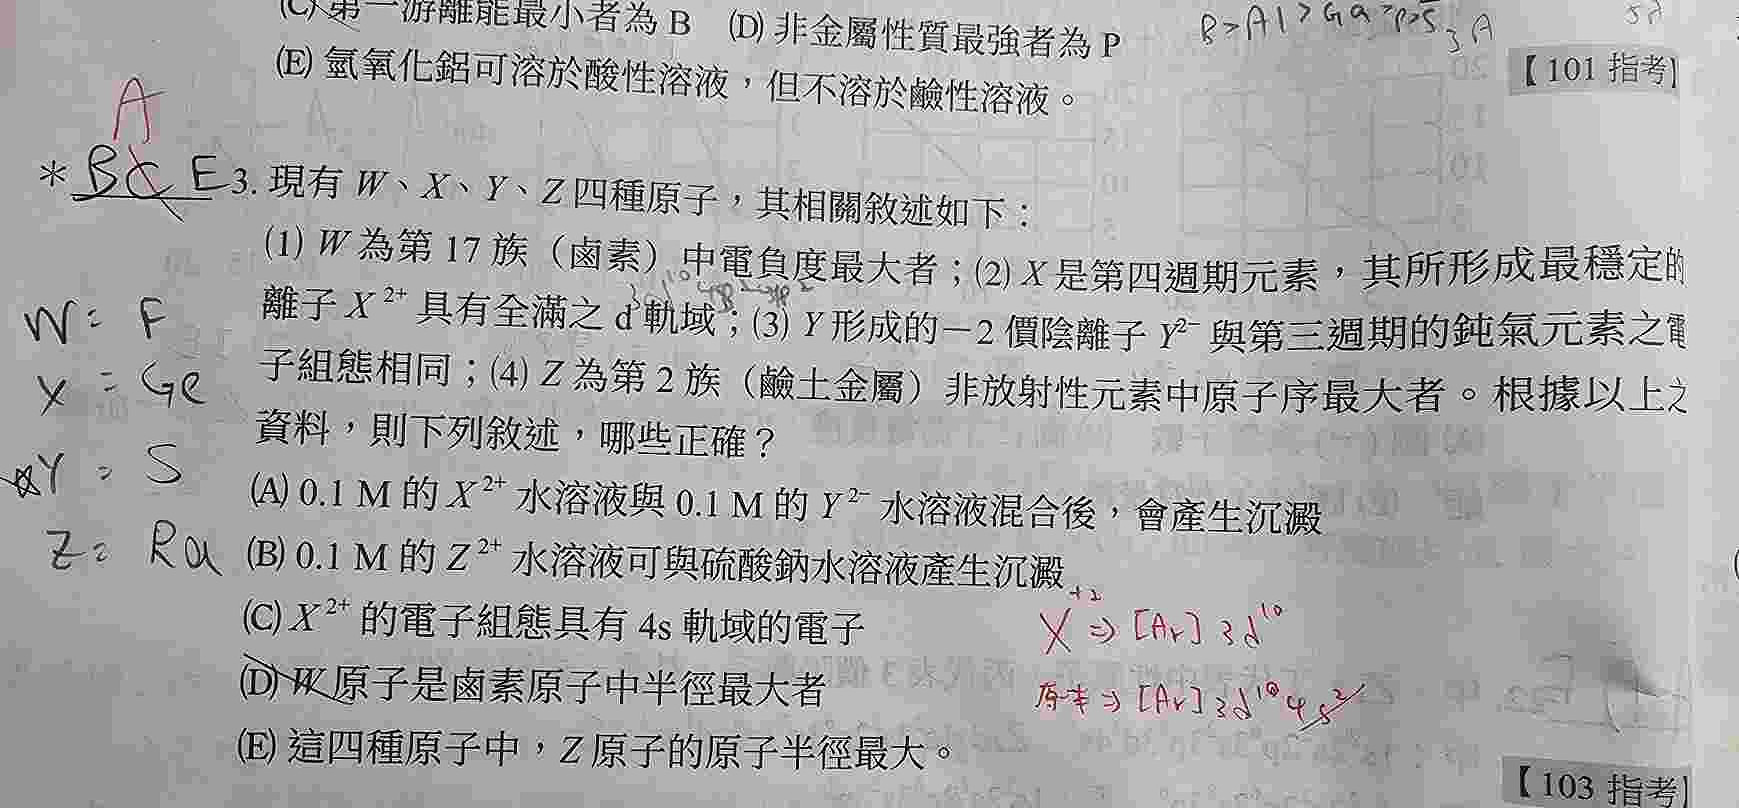 (C) 第一游離能最小者為 B (D) 非金屬性質最強者為 P
B>Al>Ga>P>S
(E) 氫氧化鋁可溶於酸性溶液，但不溶於鹼性溶液。
【101 指考】
A
*BC E 3. 現有 W、X、Y、Z 四種原子，其相關敘述如下：
(1) W 為第 17 族（鹵素）中電負度最大者；(2) X 是第四週期元素，其所形成最穩定的
離子 X²⁺ 具有全滿之 d 軌域；(3) Y 形成的－2 價陰離子 Y²⁻ 與第三週期的鈍氣元素之電
子組態相同；(4) Z 為第 2 族（鹼土金屬）非放射性元素中原子序最大者。根據以上之
資料，則下列敘述，哪些正確？
W: F
X = Ge
Y: S
Z: Ra
(A) 0.1 M 的 X²⁺ 水溶液與 0.1 M 的 Y²⁻ 水溶液混合後，會產生沉澱
(B) 0.1 M 的 Z²⁺ 水溶液可與硫酸鈉水溶液產生沉澱
(C) X²⁺ 的電子組態具有 4s 軌域的電子
X⁺² ⇒ [Ar] 3d¹⁰
(D) W 原子是鹵素原子中半徑最大者
原本 ⇒ [Ar] 3d¹⁰ 4s²
(E) 這四種原子中，Z 原子的原子半徑最大。
【103 指考】